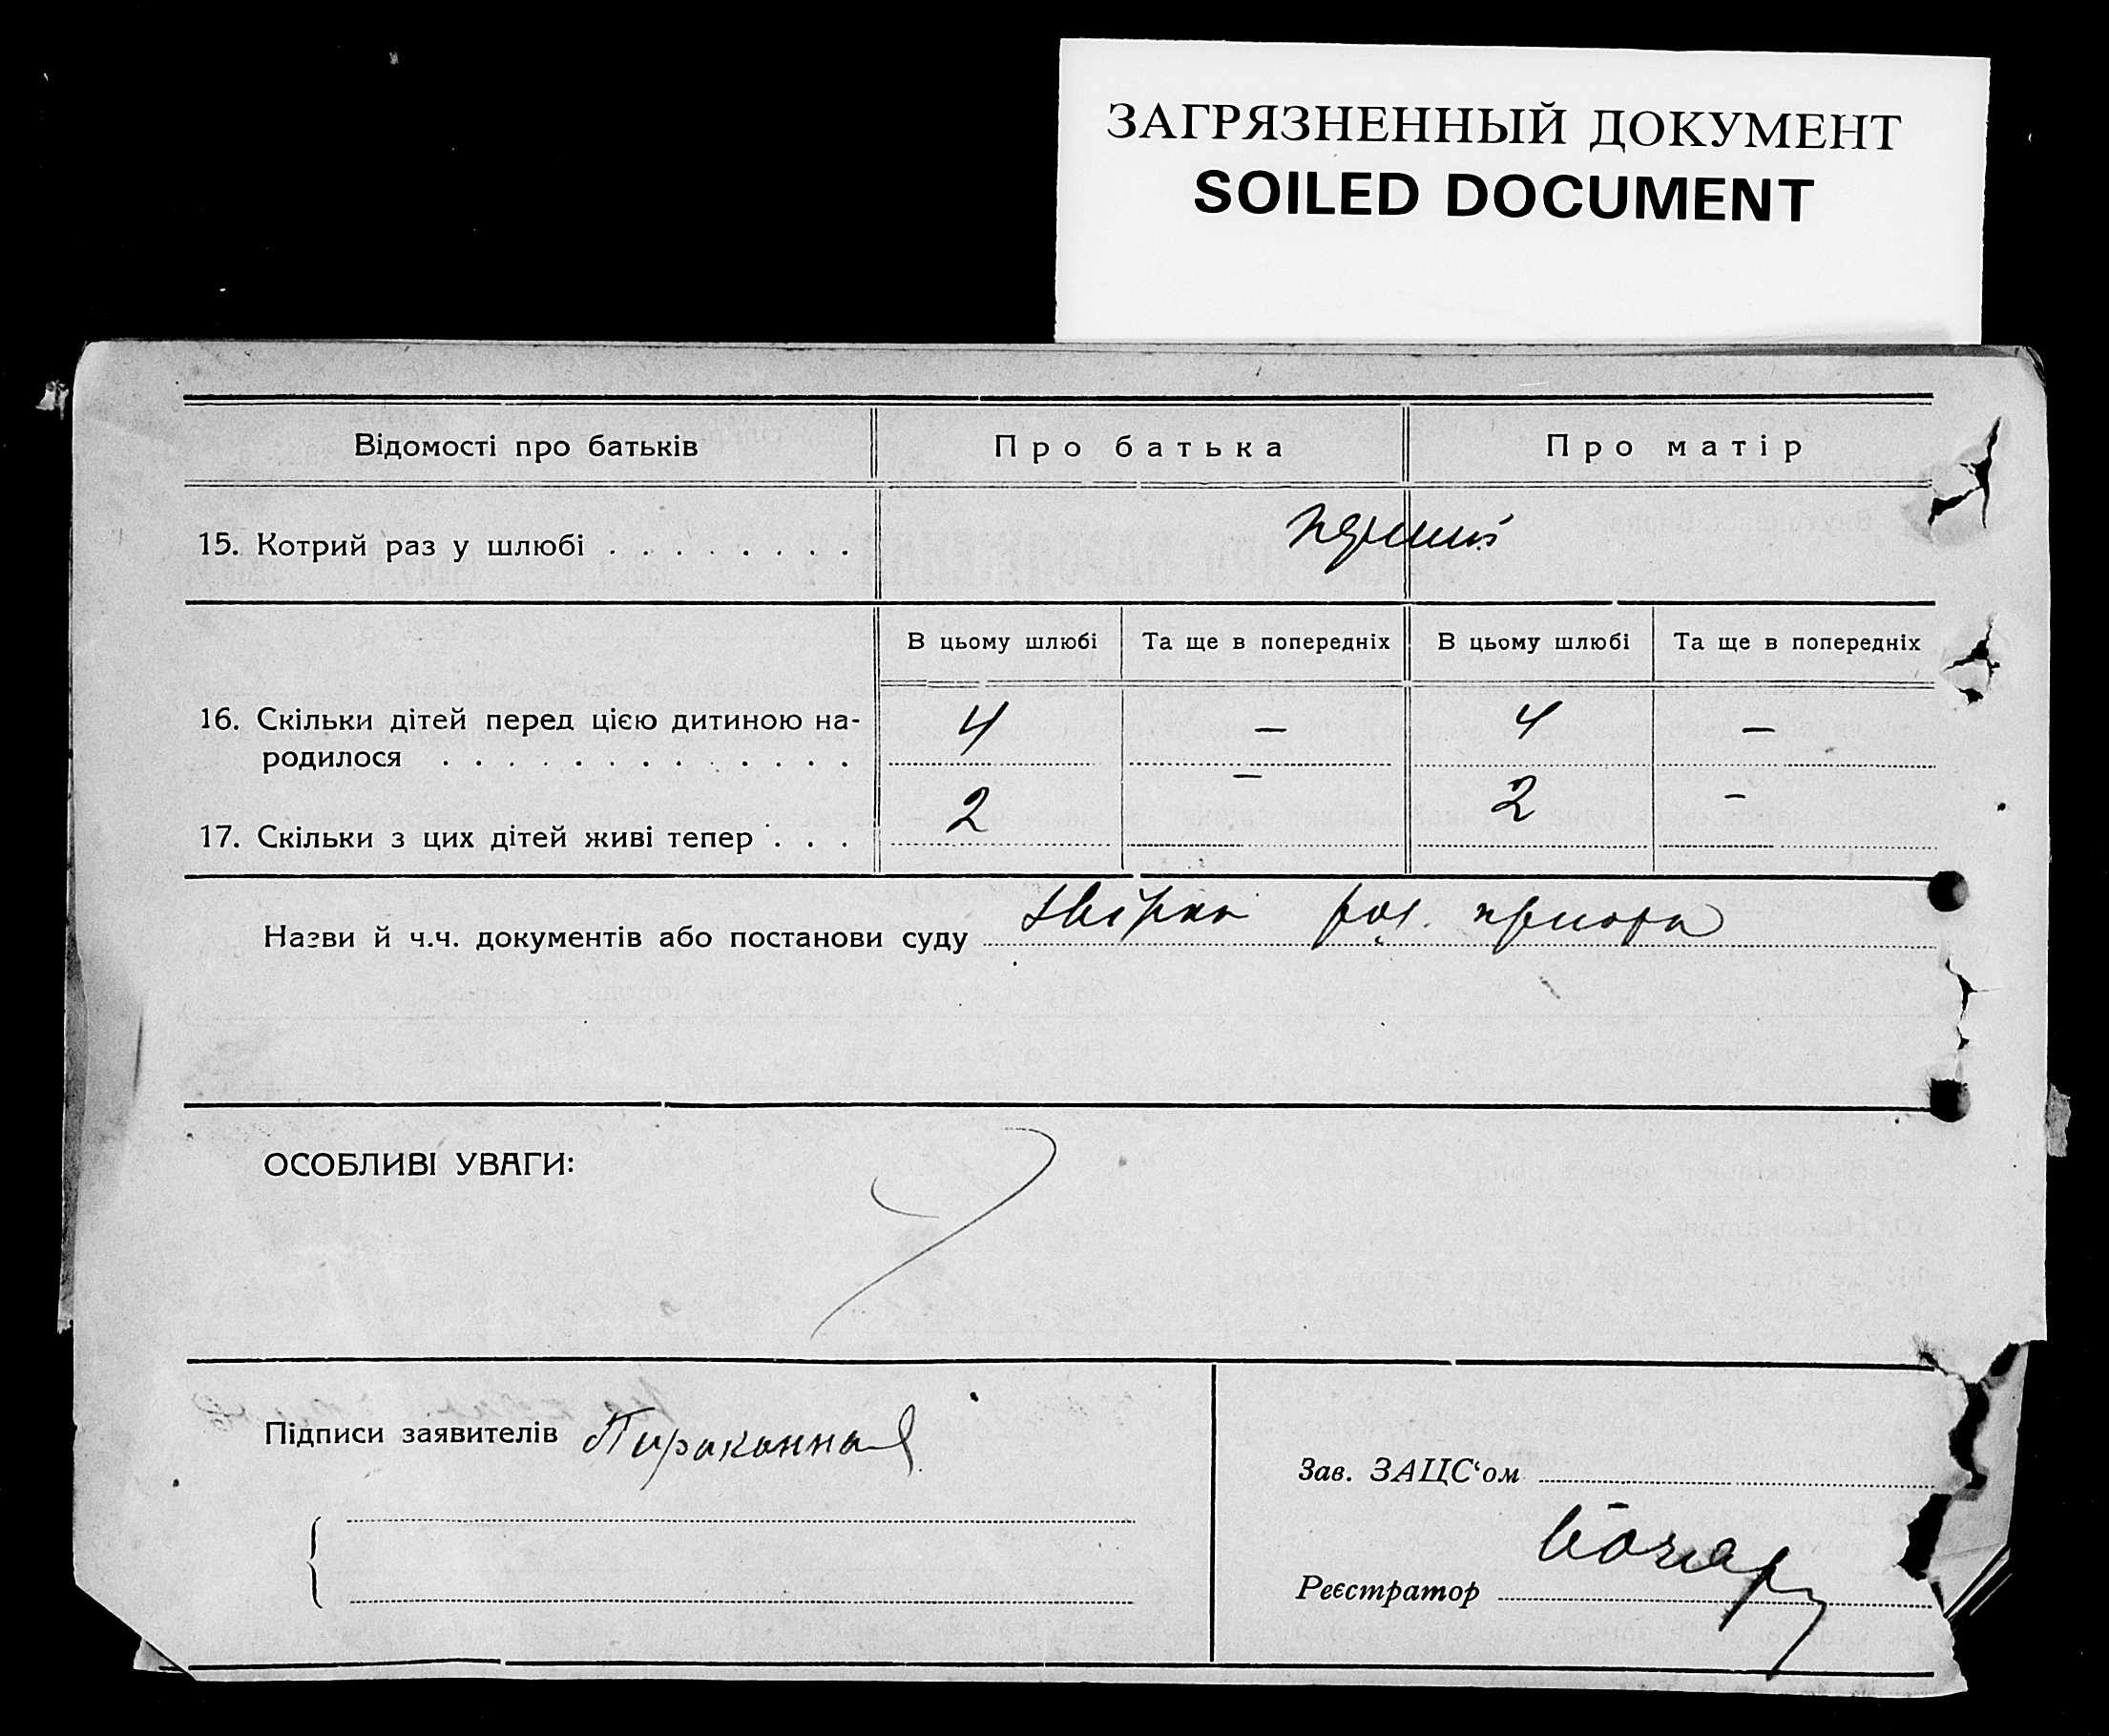 ЗАГРЯЗНЕННЫЙ ДОКУМЕНТ
SOILED DOCUMENT
Відомості про батьків Про батька Про матір
15. Котрий раз у шлюбі . . . . . . . . перший
В цьому шлюбі Та ще в попередніх В цьому шлюбі Та ще в попередніх
16. Скільки дітей перед цією дитиною на-
родилося . . . . . . . . . . . . . . 4 — 4 —
17. Скільки з цих дітей живі тепер . . . 2 — 2 —
Назви й ч.ч. документів або постанови суду
ОСОБЛИВІ УВАГИ:
Підписи заявителів
Зав. ЗАЦС‘ом
Реєстратор